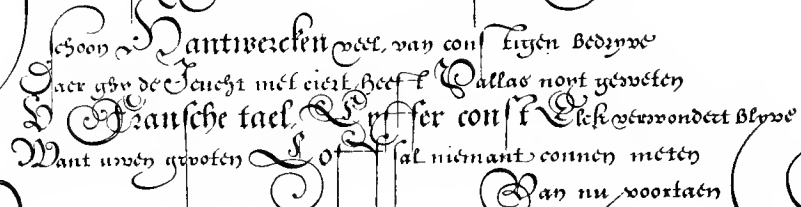 schoon Hantwercken veel, van constigen bedryve
Daer ghy de Jeucht met ciert, heeft Pallas noyt geweten
U Fransche tael, Cyffer const Elck verwondert blyve
Want uwen grooten Lof sal niemant connen meten
Van nu voortaen